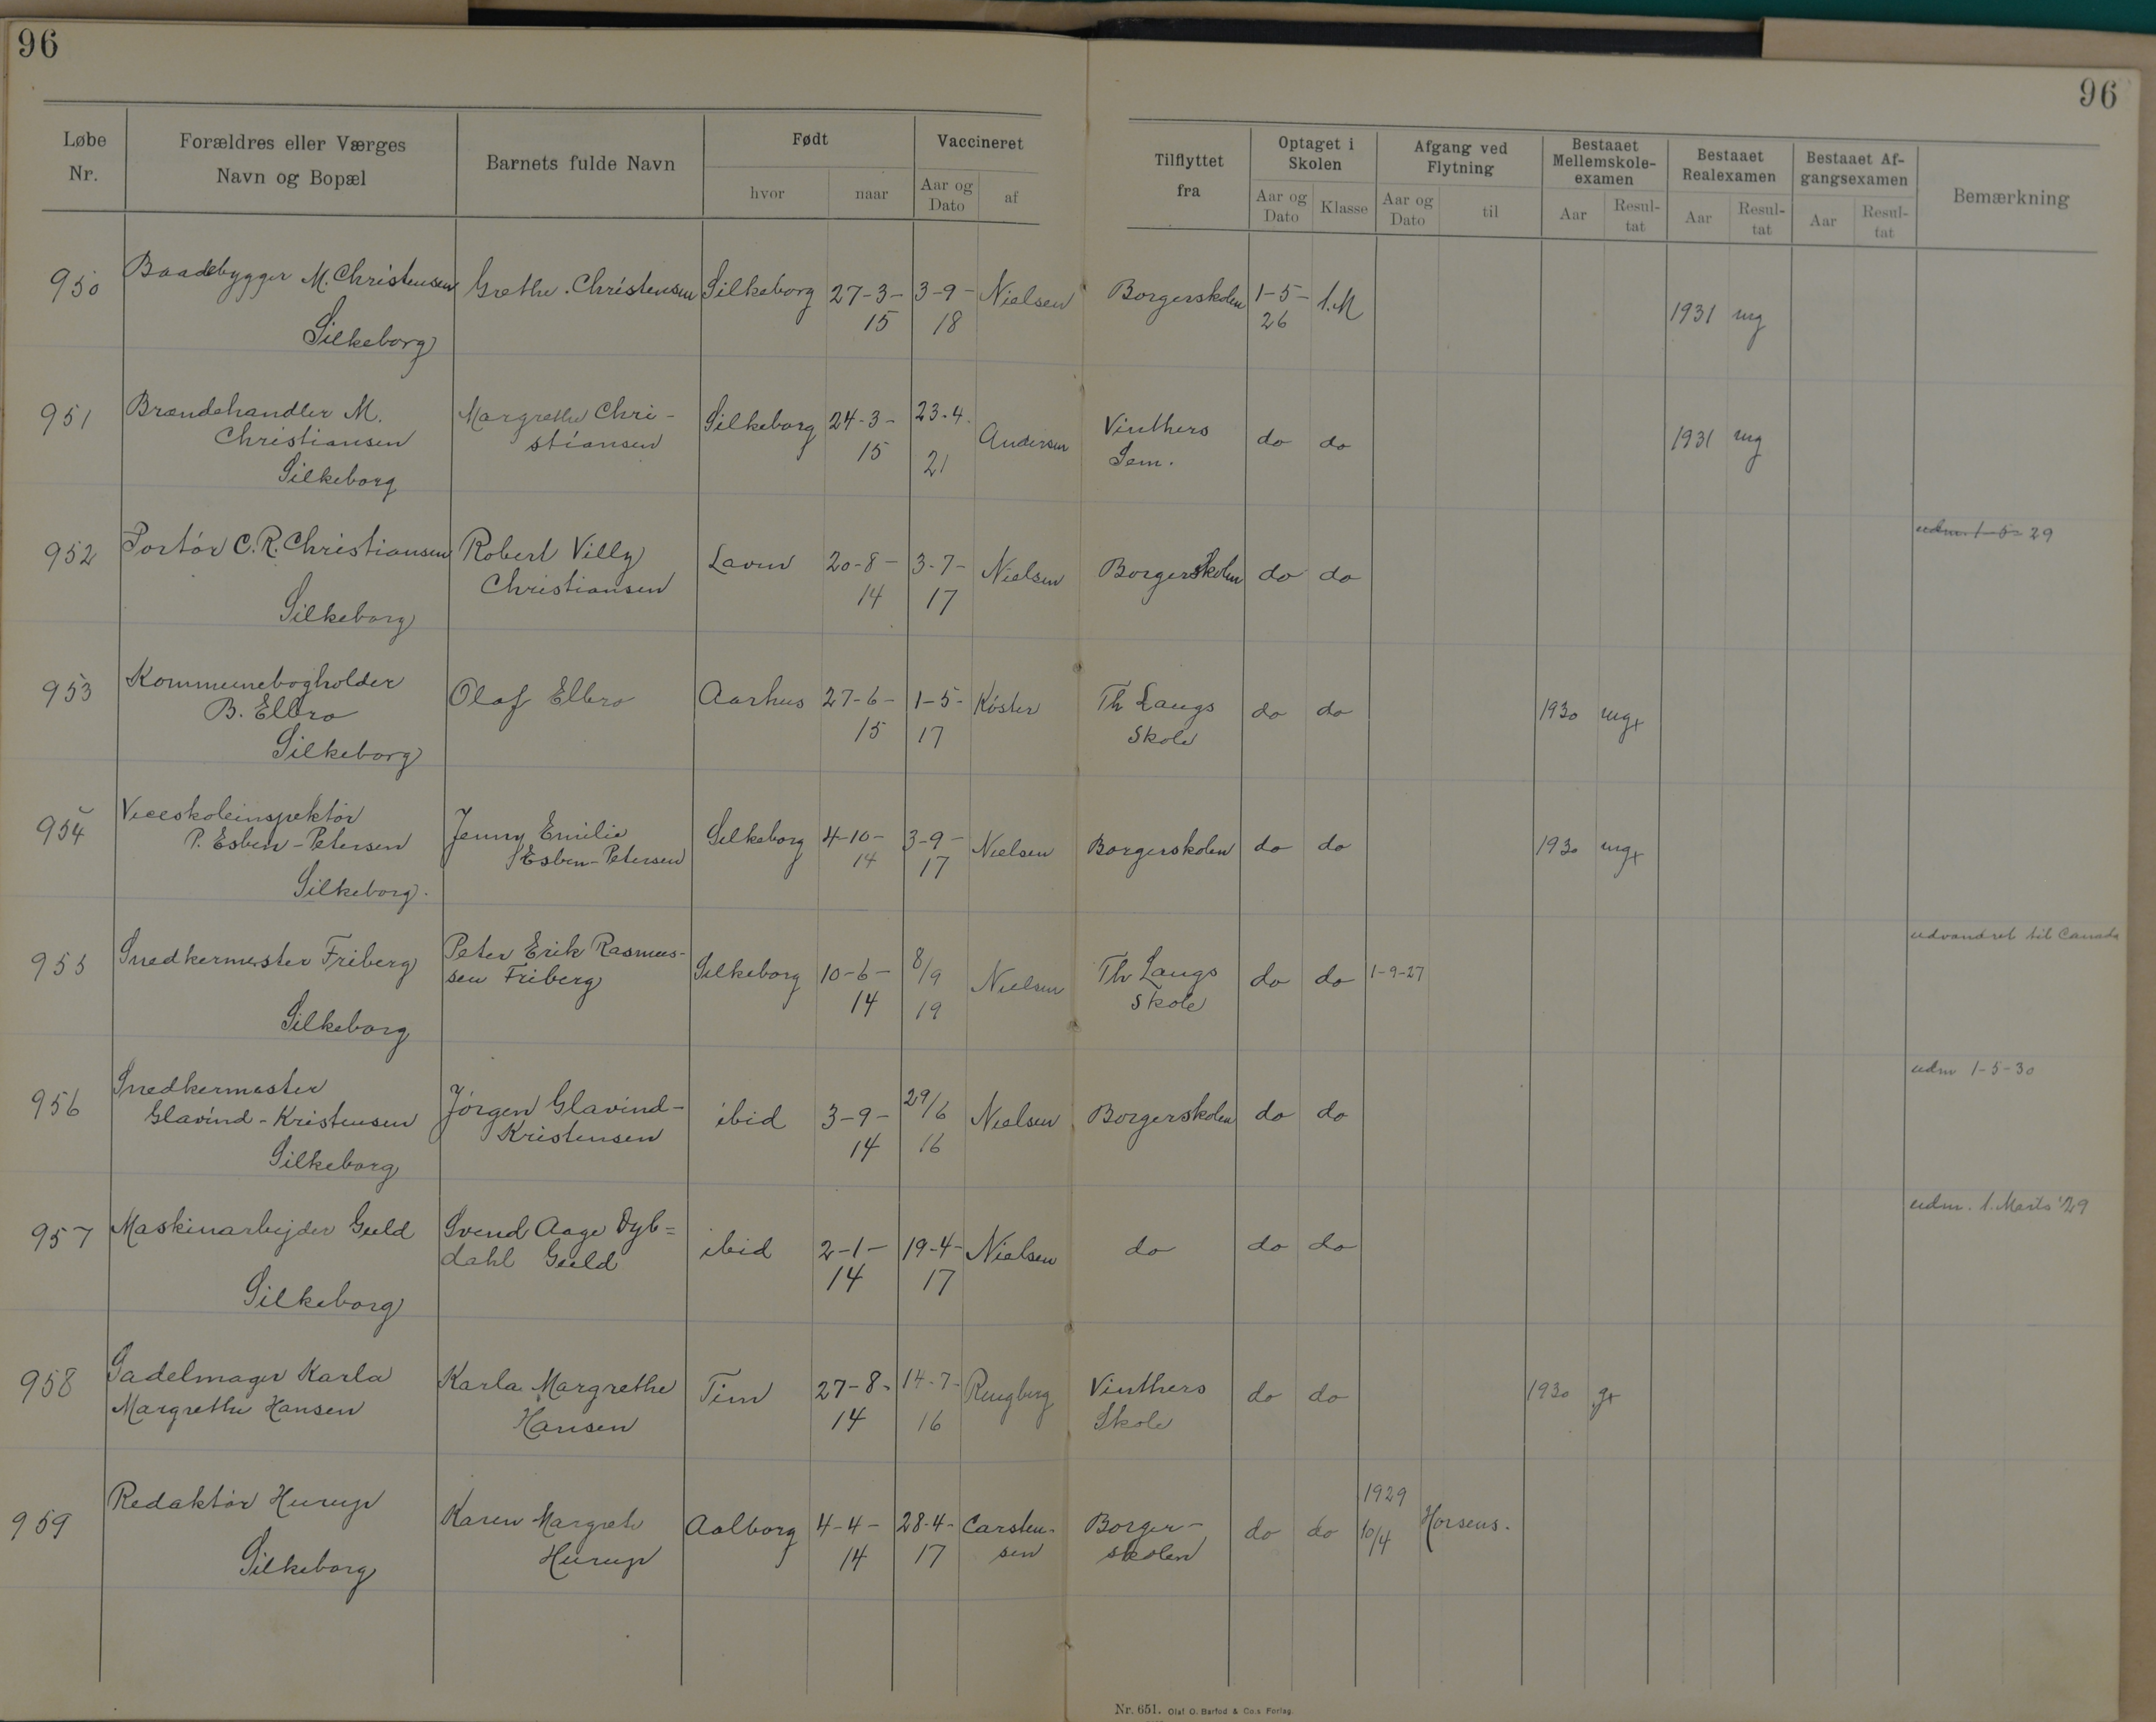 96
96
Løbe Nr.
Forældres eller Værges Navn og Bopæl
Barnets fulde Navn
Født
hvor
naar
Vaccineret
Aar og Dato
af
Tilflyttet fra
Optaget i Skolen
Aar og Dato
Klasse
Afgang ved Flytning
Aar og Dato
til
Bestaaet Mellemskole-examen
Aar
Resul-tat
Bestaaet Realexamen
Aar
Resul-tat
Bestaaet Af-gangsexamen
Aar
Resul-tat
Bemærkning
950 Baadebygger M. Christensen Grethe Christensen Silkeborg 27-3- 3-9- Nielsen Borgerskolen 1-5- 1.M
Silkeborg 15 18 26 1931 mg
951 Brændehandler M. Margrethe Chri- Silkeborg 24-3- 23-4. Andersen Vinthers do do 1931 mg
Christiansen stiansen 15 21 Sem.
Silkeborg
udm. 1-5- 29
952 Portør C. R. Christiansen Robert Villy Laven 20-8- 3-7- Nielsen Borgerskolen do do
Christiansen 14 17
Silkeborg
953 Kommunebogholder Olaf Elbro Aarhus 27-6- 1-5- Køster Th Langs do do 1930 mg+
B. Elbro 15 17 Skole
Silkeborg
954 Viceskoleinspektør Jenny Emilie Silkeborg 4-10- 3-9- Nielsen Borgerskolen do do 1930 mg+
P. Esben-Petersen Esben-Petersen 14 17
Silkeborg.
udvandret til Canada
955 Snedkermester Friberg Peter Erik Rasmus- Silkeborg 10-6- 8/9 Nielsen Th Langs do do 1-9-27
sen Friberg 14 19 Skole
Silkeborg
udm 1-5-30
956 Snedkermester Jørgen Glavind- ibid 3-9- 29/6 Nielsen Borgerskolen do do
Glavind-Kristensen Kristensen 14 16
Silkeborg
udm. 1. Marts '29
957 Maskinarbejder Guld Svend Aage Dyb= ibid 2-1- 19-4- Nielsen do do do
dahl Guld 14 17
Silkeborg
958 Sadelmager Karla Karla Margrethe Tim 27-8- 14-7- Vinthers do do 1930 g+
Margrethe Hansen Hansen 14 16 Skole
959 Redaktør Hurup Karen Margrete Aalborg 4-4- 28-4- Carsten- Borger- do do 1929 10/4 Horsens.
Silkeborg Hurup 14 17 sen skolen
Nr. 651. Olaf O. Barfod & Co.s Forlag.